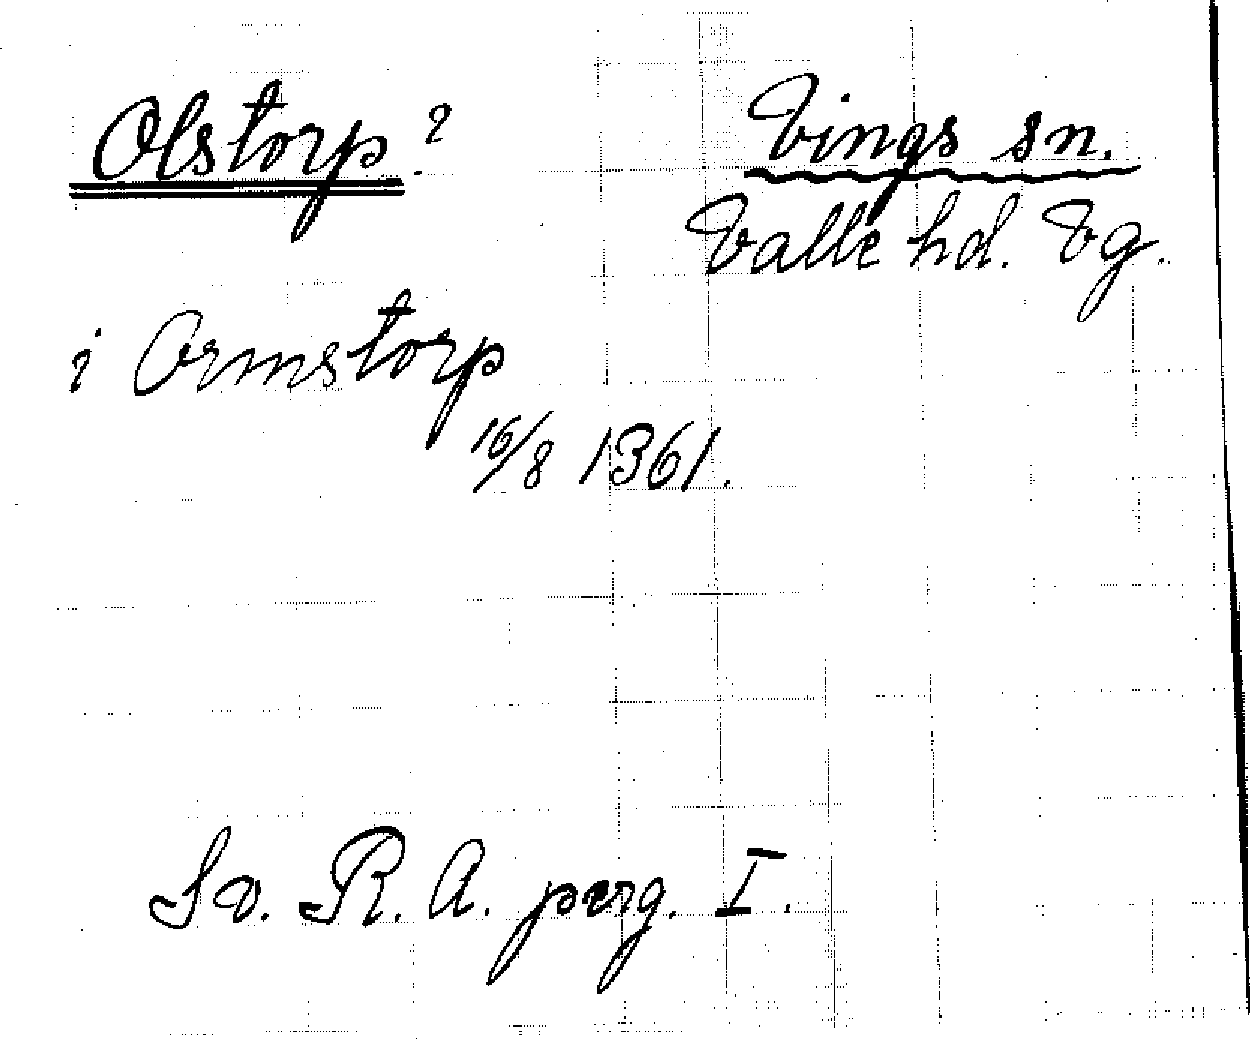 Olstorp?
Vings sn.
Valle hd. Vg.
i Ormstorp
16/8 1361.
Sv. R. A. perg. I.